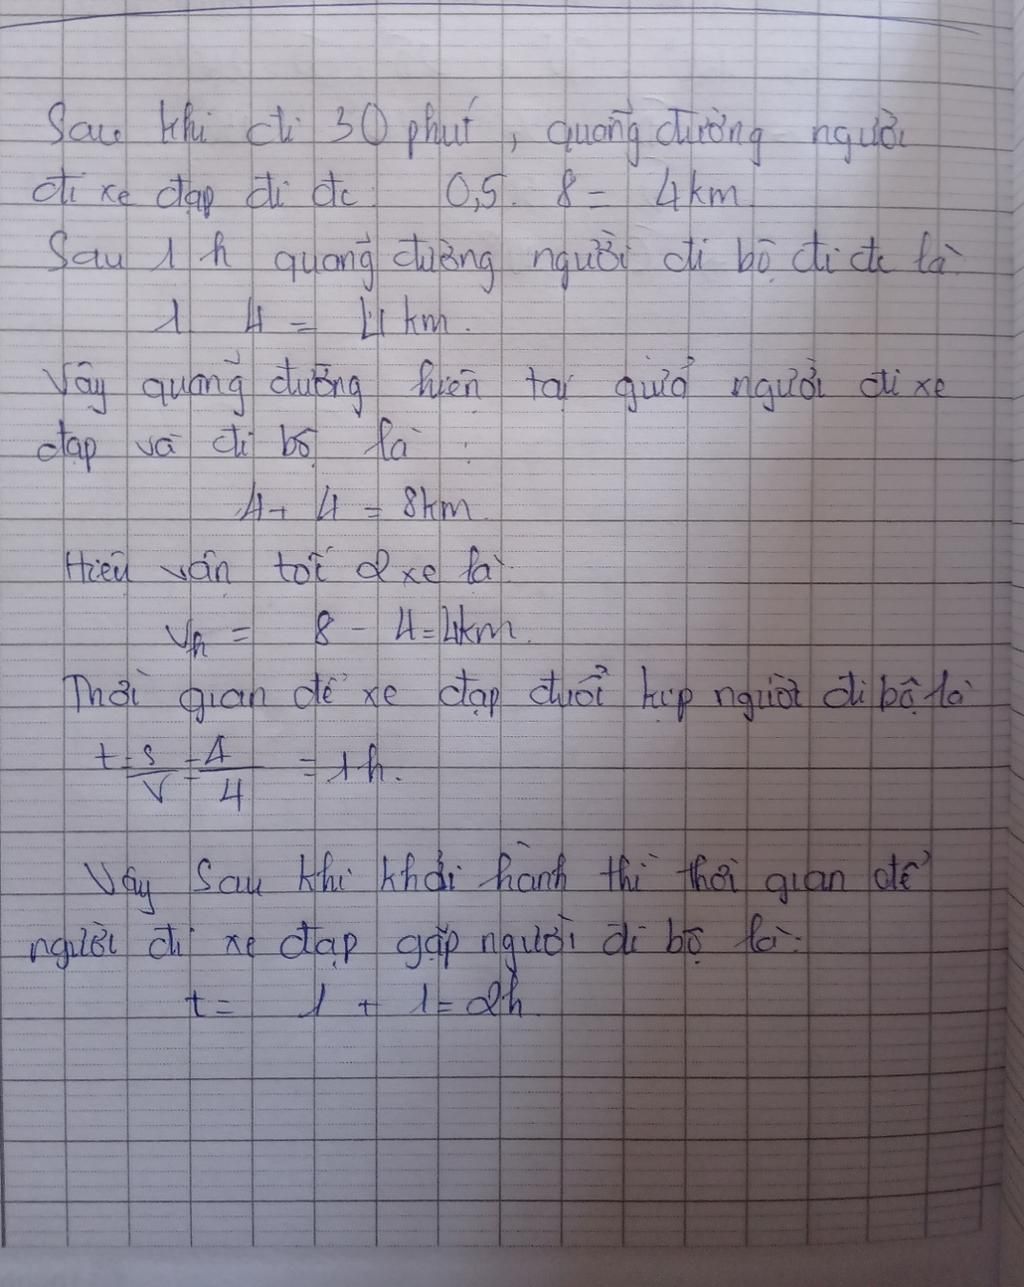 Sau khi đi 30 phút, quãng đường người
đi xe đạp đi đc 0,5. 8 = 4km
Sau 1 h quãng đường người đi bộ đi đc là
1 4 = 4 km.
Vậy quãng đường hiện tại giữa người đi xe
đạp và đi bộ là :
4 + 4 = 8km
Hiệu vận tốc 2 xe là
Vh = 8 - 4 = 4km.
Thời gian để xe đạp đuổi kịp người đi bộ là
t = s/v = 4/4 = 1h.
Vậy Sau khi khởi hành thì thời gian để
người đi xe đạp gặp người đi bộ là:
t = 1 + 1 = 2h